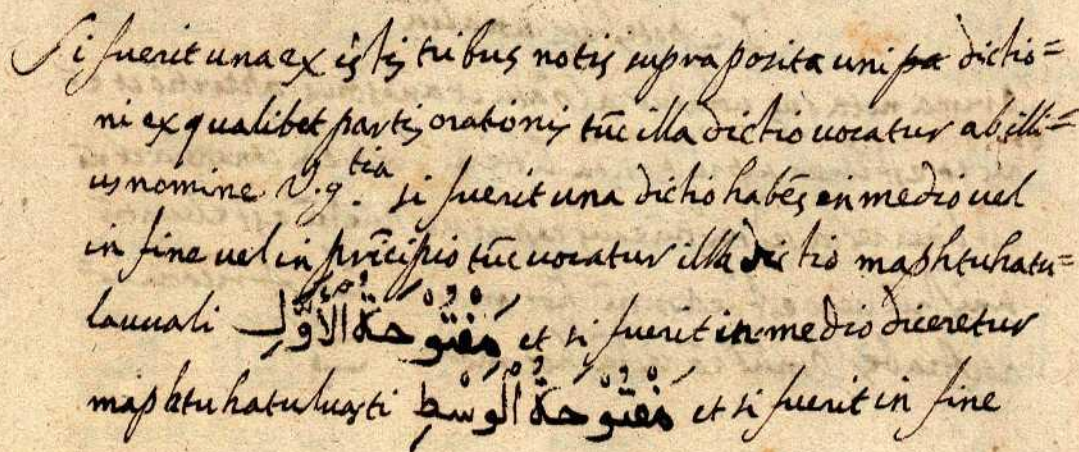 Si fuerit una ex istis tribus notis supraposita uni pa dictio=
ni ex qualibet partis orationis tũc illa dictio uocatur ab illi=
us nomine. V.g.tia si fuerit una dictio habẽs in medio uel
in fine uel in prĩcipio tũc uocatur illa dictio maphtuhatu=
lauuali مَفْتُوْحَةُ الْأَوَّلِ et si fuerit in medio diceretur
maphtuhatuluasti مَفْتُوْحَةُ الْوَسْطِ et si fuerit in fine